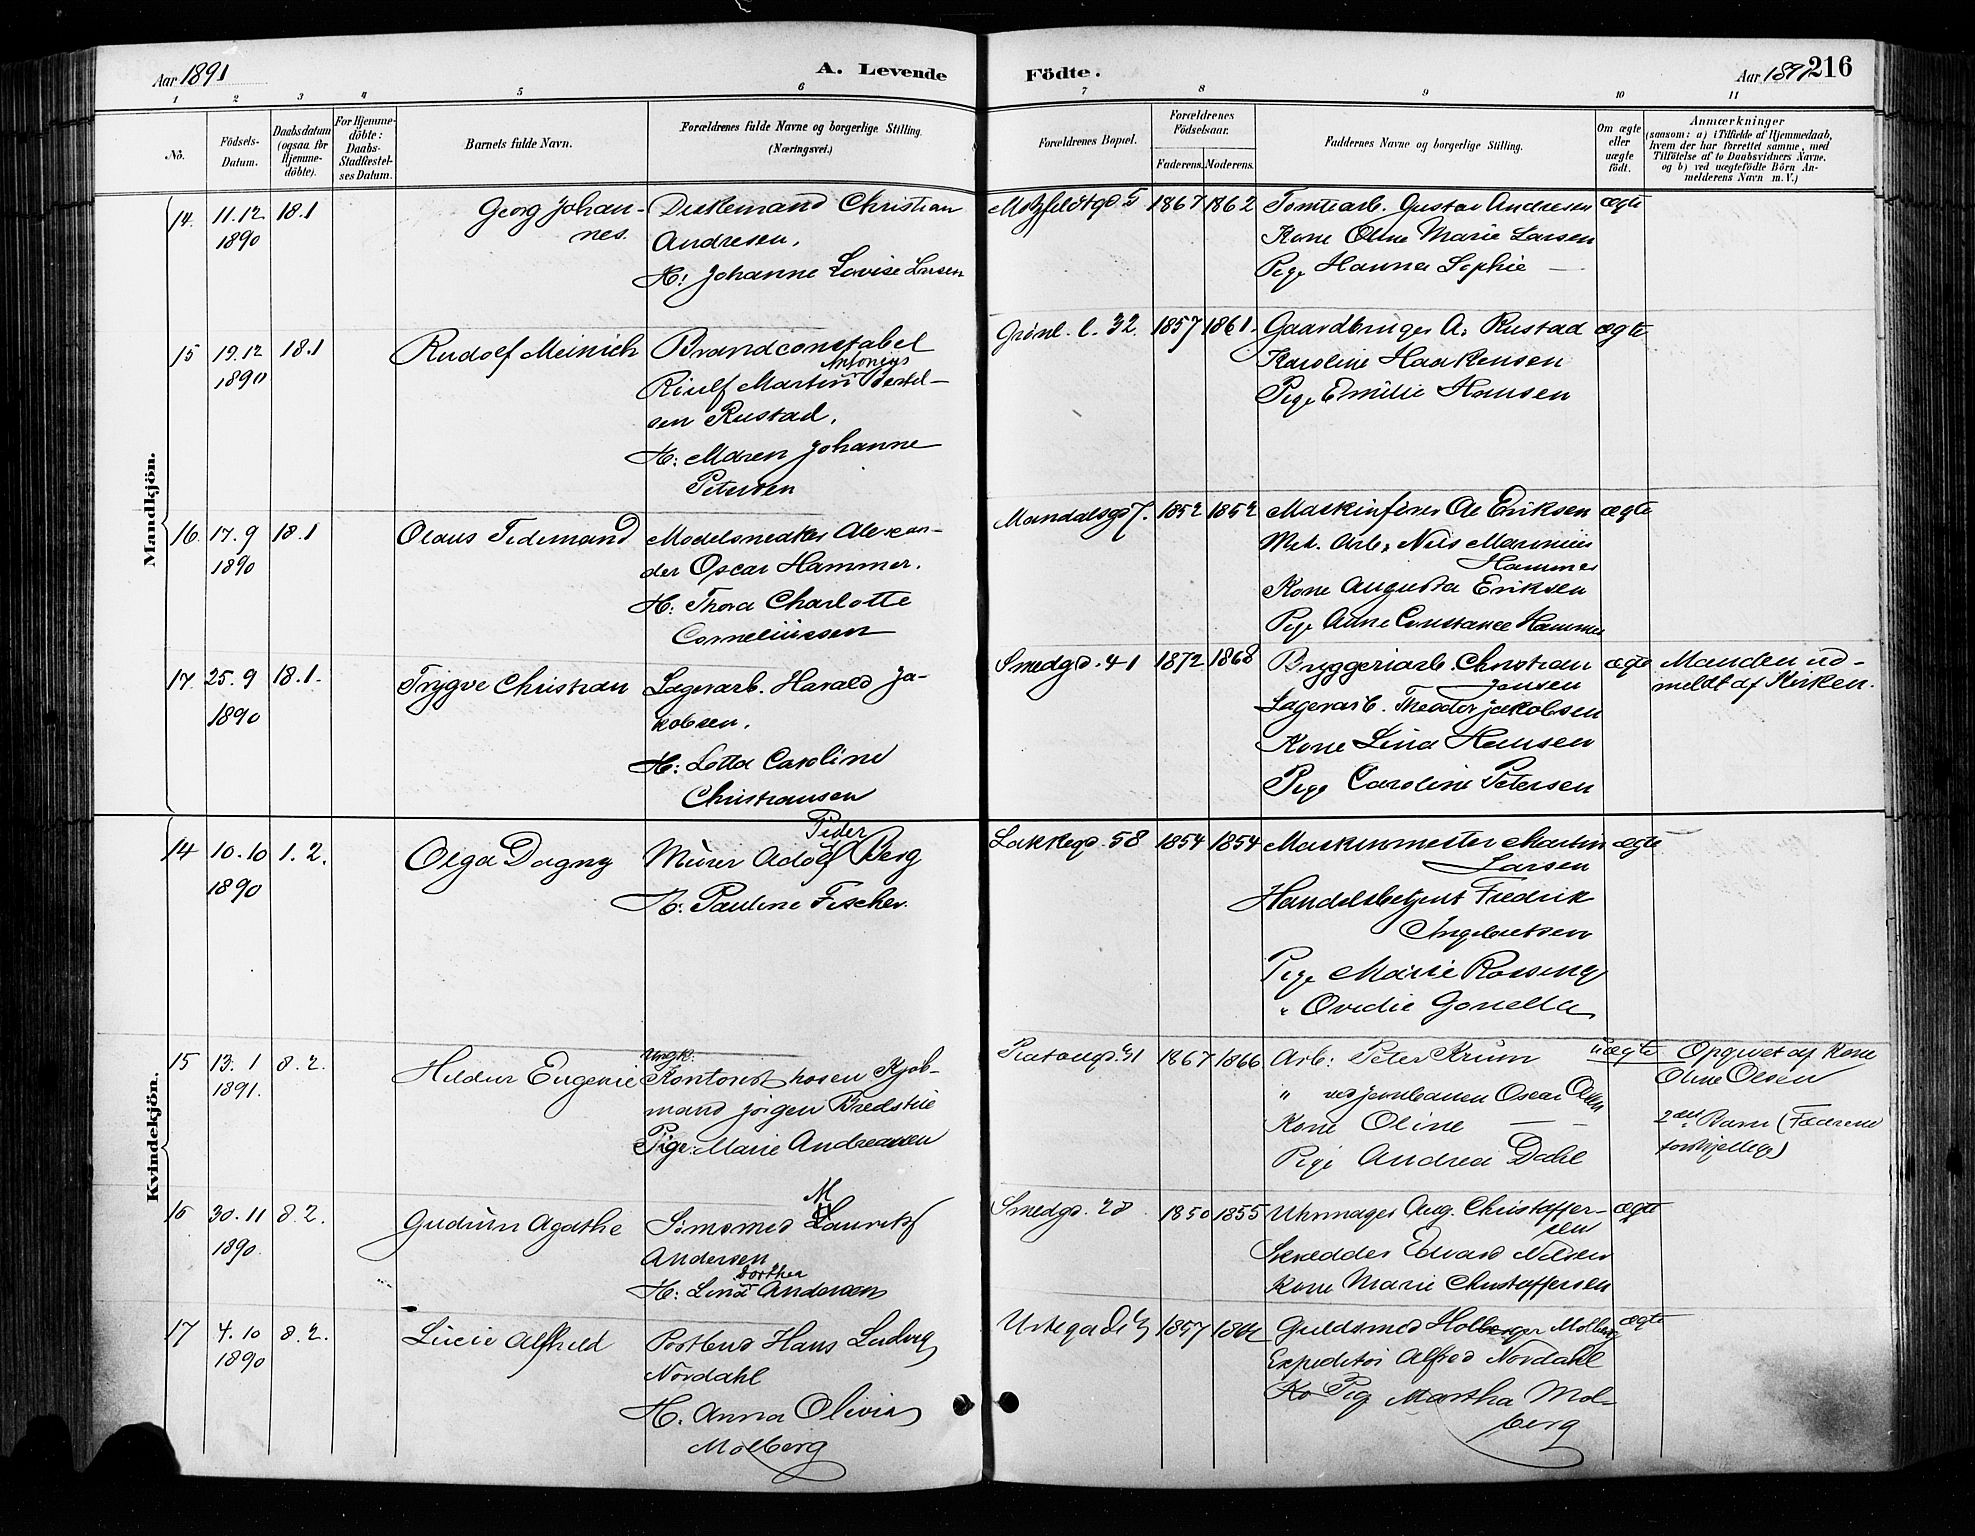 Aar 1891
A. Levende
Födte.
Aar 1891 216
1 2 3 4 5 6 7 8 9 10 11
No.
Födsels-
Datum.
Daabsdatum
(ogsaa for
Hjemme-
döbte).
For Hjemme-
döbte:
Daabs-
Stadfæstel-
ses Datum.
Barnets fulde Navn.
Forældrenes fulde Navne og borgerlige Stilling.
(Næringsvei.)
Forældrenes Bopæl.
Forældrenes
Födselsaar.
Faderens. Moderens.
Faddernes Navne og borgerlige Stilling.
Om ægte
eller
uægte
födt.
Anmærkninger
(saasom: a) i Tilfælde af Hjemmedaab,
hvem der har forrettet samme, med
Tilföielse af to Daabsvidners Navne,
og b) ved uægtefödte Börn An-
melderens Navn m.V.)
Mandkjön.
14. 11.12 1890 18.1
Georg Johan-
nes.
Christian
Andresen,
H: Johanne Lovise Larsen
Motzfeldtgd 5 1867 1862
Tomtearb. Gustav Andresen
Kone Oline Marie Larsen
Pige Hanna Sophie —
ægte
15 19.12 1890 18.1
Rudolf Meinich
Brandconstabel
Antonius
Riulf Martin Bertel-
sen Rustad,
H: Maren Johanne
Petersen
Grønl. l. 32 1857 1861.
Gaardbruger A. Rustad
Karoline Haakensen
Pige Emilie Hansen
ægte
16. 17.9 1890 18.1
Olaus Tidemand
Modelsnedker Alexan-
der Oscar Hammer.
H: Thora Charlotte
Corneliussen
Mandalsgd 7. 1852 1852
Maskinfører Ole Eriksen
Mek. Arb. Nils Marinius
Hammer
Kone Augusta Eriksen
Pige Anne Constance Hammer
ægte
17. 25.9 1890 18.1.
Trygve Christian
Lagerarb. Harald Ja-
kobsen.
H: Lotta Caroline
Christiansen
Smedgd. 41 1872 1868
Bryggeriarb. Christian
Jansen
Lagerarb. Theodor Jakobsen
Kone Lina Hansen
Pige Caroline Petersen
ægte
Manden ud-
meldt af Kirken.
Kvindekjön.
14 10.10 1890 1.2.
Olga Dagny
Peder
Murer Adolf Berg
H: Pauline Fischer.
Lakkegd. 58 1854 1854
Maskinmester Martin
Larsen
Handelsbetjent Fredrik
Ingebretsen
Pige Marie Rossing
" Ovedie Gonella
ægte
15 13.1 1891. 8.2.
Hildur Eugenie
Ungk.
Kontorist hos en Kjøb-
mand Jørgen Bredstue
Pige: Marie Andreassen
1867 1866
Arb: Peter Krum
" ved Jernbanen Oscar Olsen
Kone Oline — —
Pige Andrea Dahl
uægte
Opgivet af Kone
Oline Olsen
2det Barn (Fædrene
forskjellige)
16 30.11 1890. 8.2.
Gudrun Agathe
M
Laurits
Andersen
Dorthea
H: Lina Andersen
Smedgd. 28 1850 1855
Uhrmager Aug. Christoffer-
sen
Skrædder Edvard Nilsen
Kone Marie Christoffersen
ægte
17 4.10 1890 8.2.
Lucie Alfhild
Postbud Hans Ludvig
Nordahl
H. Anna Olivia
Molberg
1857
Guldsmed Holberger Molberg
Expeditør Alfred Nordahl
Ko Pig Martha Mol-
berg
ægte